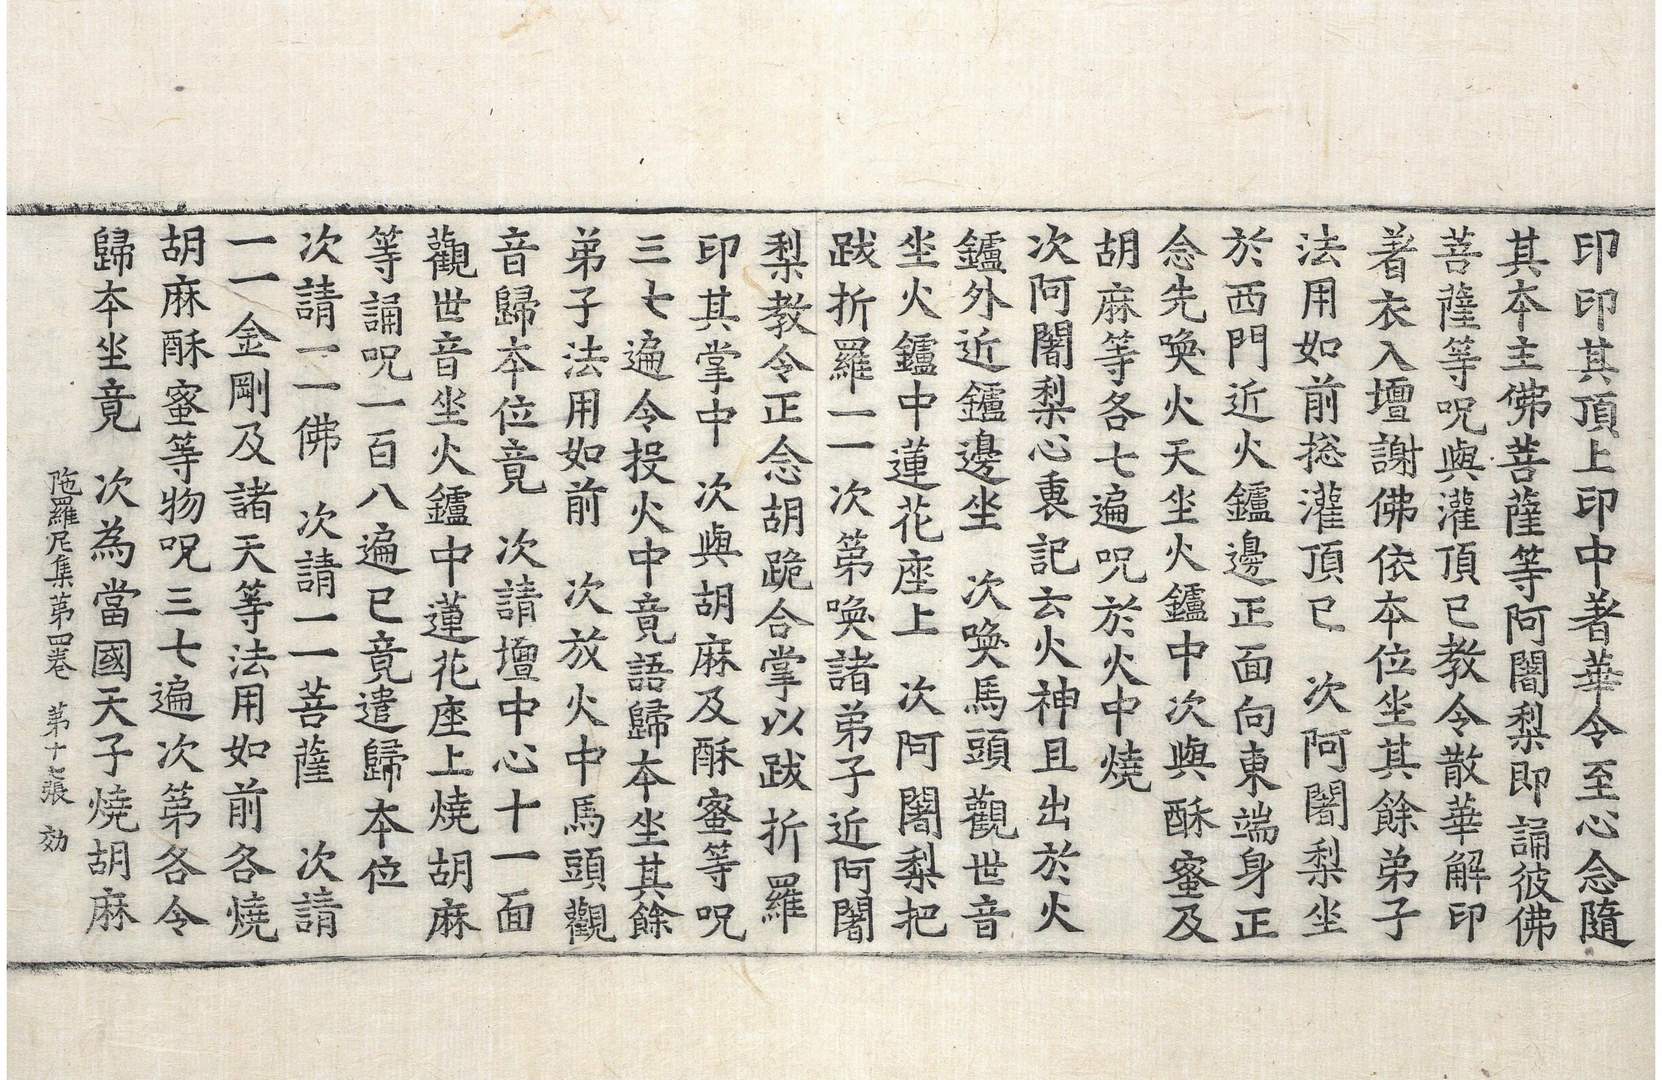 印印其頂上印中著華令至心念隨
其本主佛菩薩等阿闍梨即誦彼佛
菩薩等呪與灌頂已教令散華解印
著衣入壇謝佛依本位坐其餘弟子
法用如前揔灌頂已　次阿闍梨坐
於西門近火鑪邊正面向東端身正
念先喚火天坐火鑪中次與酥蜜及
胡麻等各七遍呪於火中燒
次阿闍梨心裏記云火神且出於火
鑪外近鑪邊坐　次喚馬頭觀世音
坐火鑪中蓮花座上　次阿闍梨把
跋折羅一一次第喚諸弟子近阿闍
梨教令正念胡跪合掌以跋折羅
印其掌中　次與胡麻及酥蜜等呪
三七遍令投火中竟語歸本坐其餘
弟子法用如前　次放火中馬頭觀
音歸本位竟　次請壇中心十一面
觀世音坐火鑪中蓮花座上燒胡麻
等誦呪一百八遍已竟遣歸本位
次請一一佛　次請一一菩薩　次請
一一金剛及諸天等法用如前各燒
胡麻酥蜜等物呪三七遍次第各令
歸本坐竟　次為當國天子燒胡麻
陁羅尼集第四卷　第十七張　効